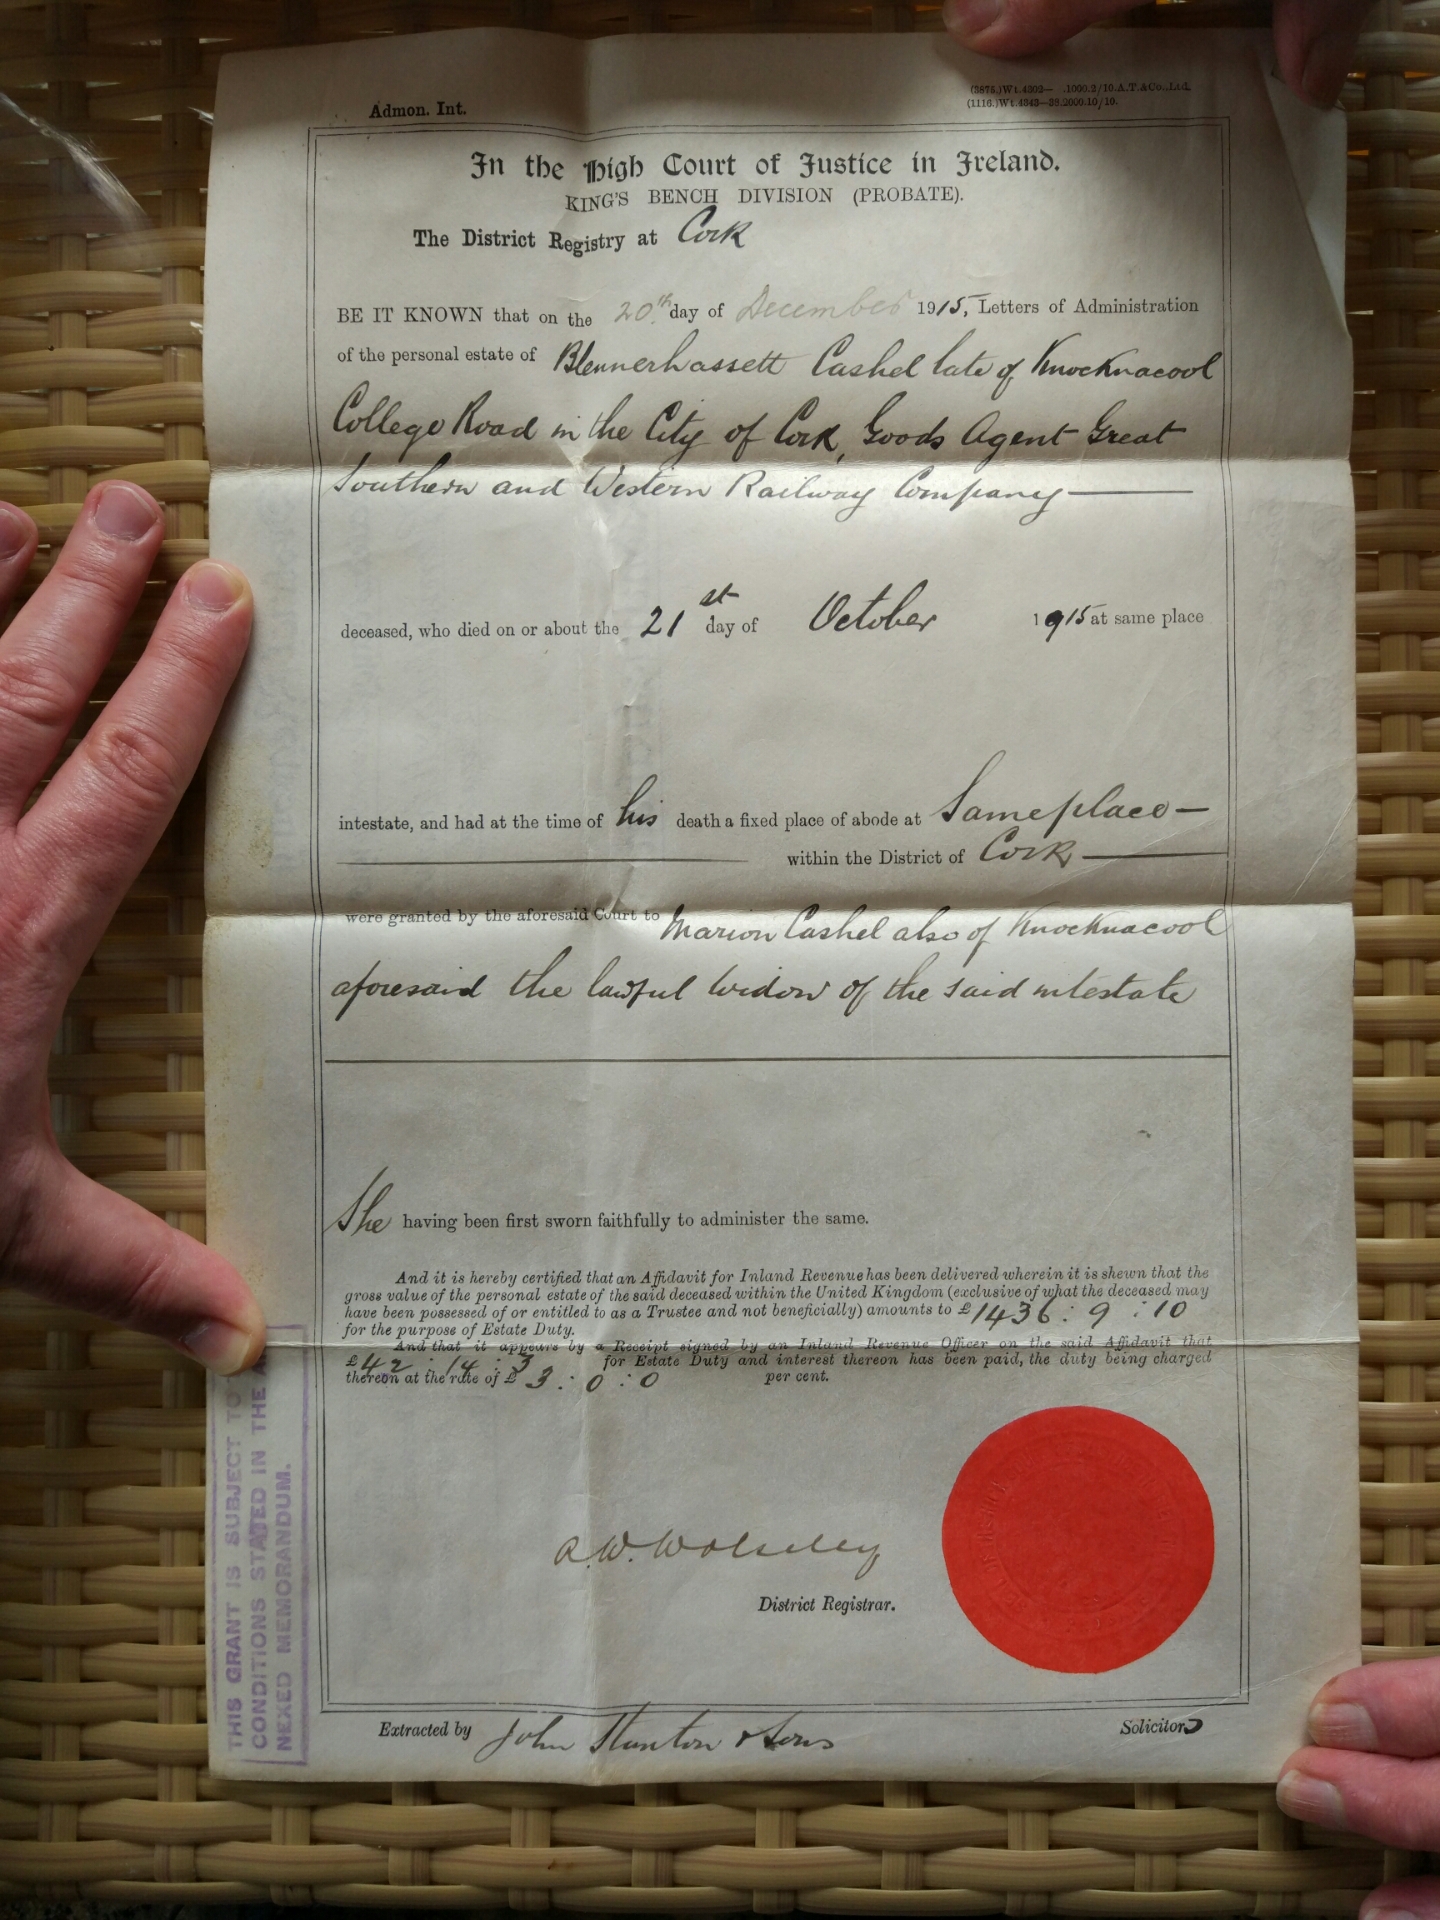 Admon. Int.
(3875.)Wt.4302— .1000.2/10.A.T.&Co.,Ltd.
(1116.)Wt.4343—38.2000.10/10.
In the High Court of Justice in Ireland.
KING'S BENCH DIVISION (PROBATE).
The District Registry at Cork
BE IT KNOWN that on the 20th day of December 1915, Letters of Administration
of the personal estate of Blennerhassett Cashel late of Knocknacool
College Road in the City of Cork, Goods Agent Great
Southern and Western Railway Company
deceased, who died on or about the 21st day of October 1915 at same place
intestate, and had at the time of his death a fixed place of abode at Same place
within the District of Cork
were granted by the aforesaid Court to Marion Cashel also of Knocknacool
aforesaid the lawful widow of the said intestate
She having been first sworn faithfully to administer the same.
And it is hereby certified that an Affidavit for Inland Revenue has been delivered wherein it is shewn that the
gross value of the personal estate of the said deceased within the United Kingdom (exclusive of what the deceased may
have been possessed of or entitled to as a Trustee and not beneficially) amounts to £1436 : 9 : 10
for the purpose of Estate Duty.
And that it appears by a Receipt signed by an Inland Revenue Officer on the said Affidavit that
£42 : 14 : 3 for Estate Duty and interest thereon has been paid, the duty being charged
thereon at the rate of £3 : 0 : 0 per cent.
R. W. Wolseley
District Registrar.
THIS GRANT IS SUBJECT TO
CONDITIONS STATED IN THE A
NEXED MEMORANDUM.
Extracted by John Stanton & Sons Solicitors